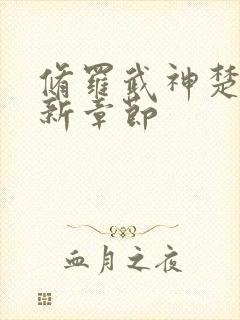 脩羅武神楚
新章節
血月之夜